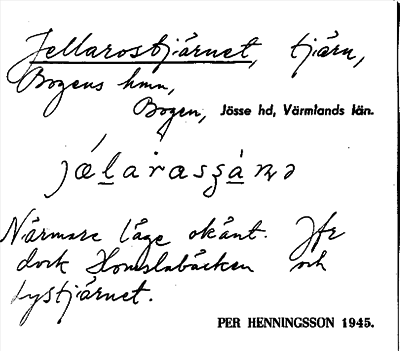 Jellarostjärnet, tjärn,
Bogens hmn,
Bogen, Jösse hd, Värmlands län.
Närmare läge okänt. Jfr
dock Homslabäcken och
Lystjärnet.
PER HENNINGSSON 1945.